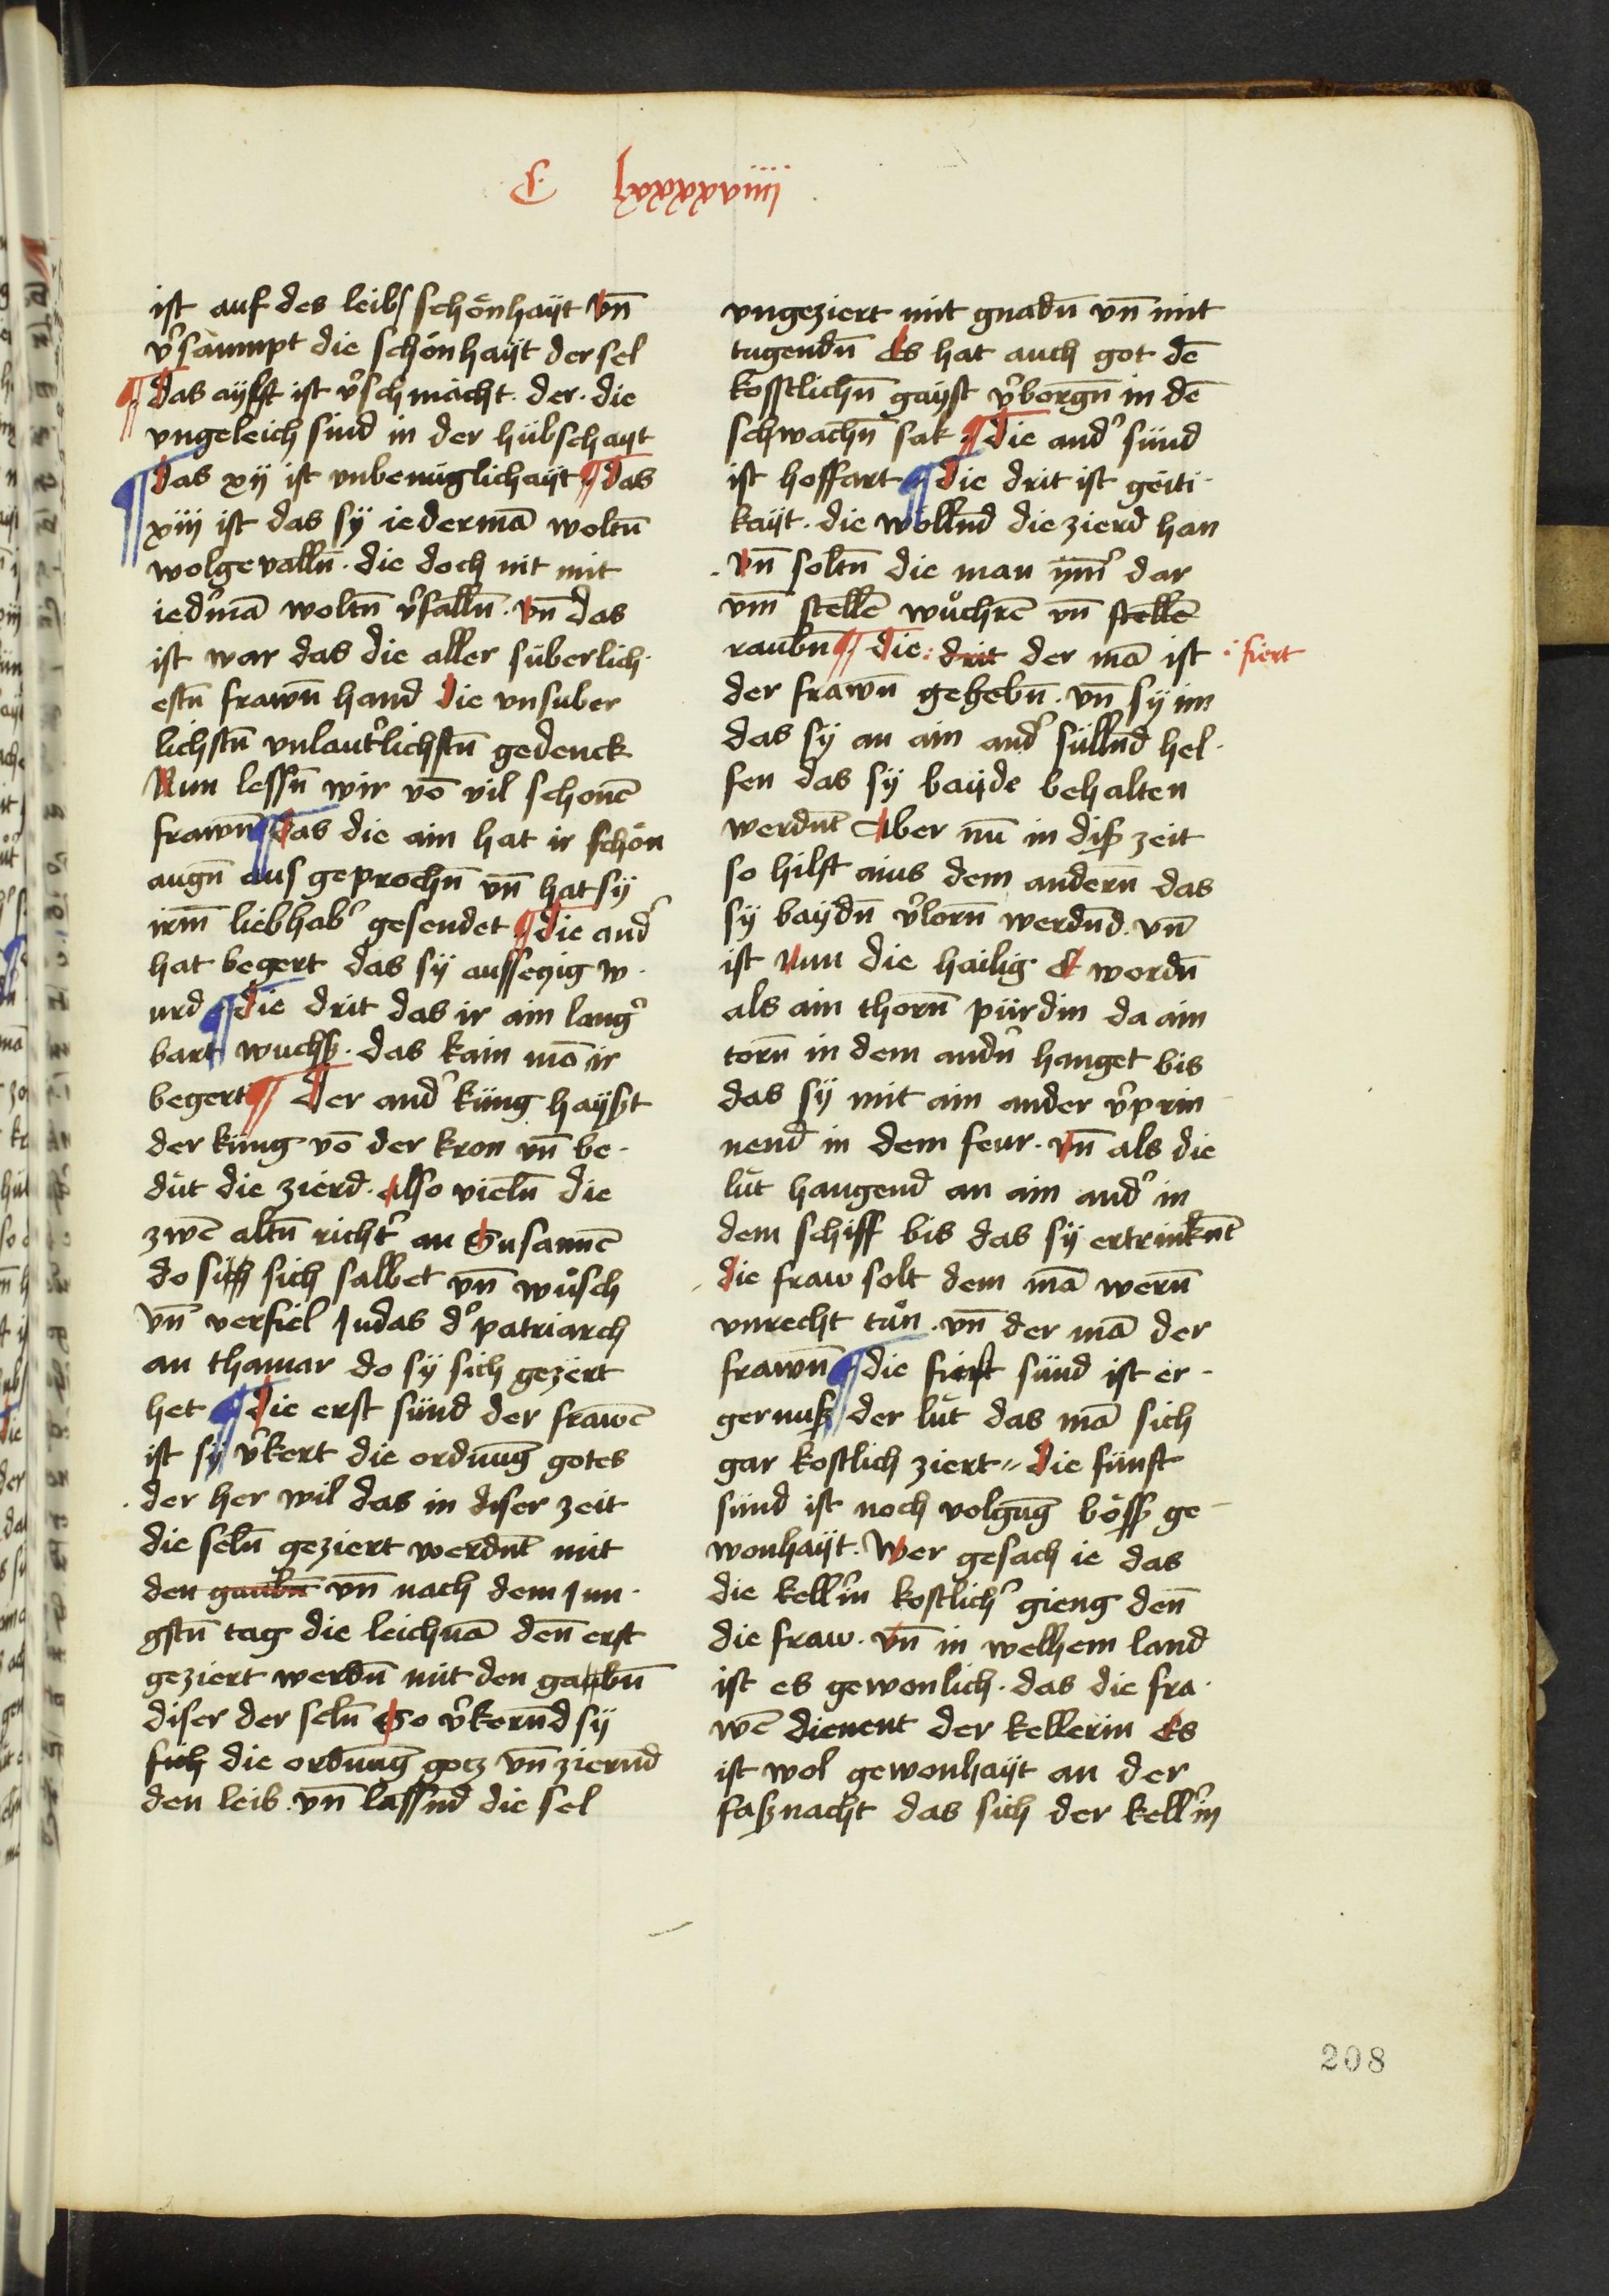 ist auf des leibs schönhayt vn̄
v̓sampt die schönhayt der sel
¶ das aylft ist v̓schmächt · der · die
vngeleich sind in der hübschayt
¶ das xij ist vnbenüglichayt ¶ das
xiij ist das sy iedermā woltn̄
wolgevalln̄ · die doch nit mit
ied̓mā woltn̄ v̓falln̄ · vn̄ das
ist war das die aller süberlich·
estn̄ frawn̄ hand die vnsuber
lichstn̄ vnlaut̓lichstn̄ gedenck
Nun lessn̄ wir vō vil schonē
frawn̄ ¶ das die ain hat ir schön
augn̄ aus geprochn̄ vn̄ hat sy
irm̄ liebhab̓ gesendet ¶ die and̓
hat begert das sy aussezig w·
urd ¶ die drit das ir ain lang̓
bart wuchß · das kain mā ir
begert ¶ Der and̓ küng hayßt
der küng vō der kron vn̄ be·
düt die zierd · Also vieln̄ die
zwē altn̄ richt̓ an Susannē
do sich sich salbet vn̄ wůsch
vn̄ verfiel Judas d̓ patriarch
an thamar do sy sich geziert
het ¶ die erst sünd der frawē
ist sy v̓kert die ordnung gotes
der her wil das in diser zeit
die seln̄ geziert werdnt̄ mit
den gaubn̄ vn̄ nach dem Jun·
gstn̄ tag die leichnā den̄ erst
geziert werdn̄ mit den gaubn̄
diser der seln̄ So v̓kernd̄ sy
sich die ordnung gotz vn̄ ziernd̄
den leib · vn̄ lassnd̄ die sel
vngeziert mit gnadn̄ vn̄ mit
tugendn̄ Es hat auch got dē
kosstlichn̄ gayst v̓borgn̄ in dē
schwachn̄ sak ¶ die and̓ sünd
ist hoffart ¶ die drit ist geiti·
kayt · die wöllnd̄ die zierd han
vn̄ soltn̄ die man ym̄̓ dar
vm̄ stellē wůchrē vn̄ stellē
raubn̄ ¶ die : drit der mā ist · fiert
der frawn̄ gehebn̄ · vn̄ sy im
das sy an ain and̓ süllnd̄ hel·
fen das sy bayde behalten
werdnt̄ Aber nū in diß zeit
so hilft ains dem andern̄ das
sy baydn̄ v̓lorn̄ werdnd̄ · vn̄
ist Nun die hailig · E wordn̄
als ain thorn̄ pürdin da ain
torn̄ in dem andn̄̓ hanget bis
das sy mit ain ander v̓prin
nend in dem feur · vn̄ als die
lüt hangend an ain and̓ in
dem schiff bis das sy ertrinknt̄
die fraw solt dem mā wern̄
vnrecht tůn · vn̄ der mā der
frawn̄ ¶ die fierst sünd ist er·
gernuß der lüt das mā sich
gar kostlich ziert · die fünft
sünd ist noch volguḡ böß ge
wonhayt · Wer gesach ie das
die kell̓in kostlich̓ gieng den̄
die fraw · vn̄ in welhem land
ist es gewonlich · das die fra·
wē dienent der kellerin Es
ist wol gewonhayt an der
faßnacht das sich der kell̓in
208